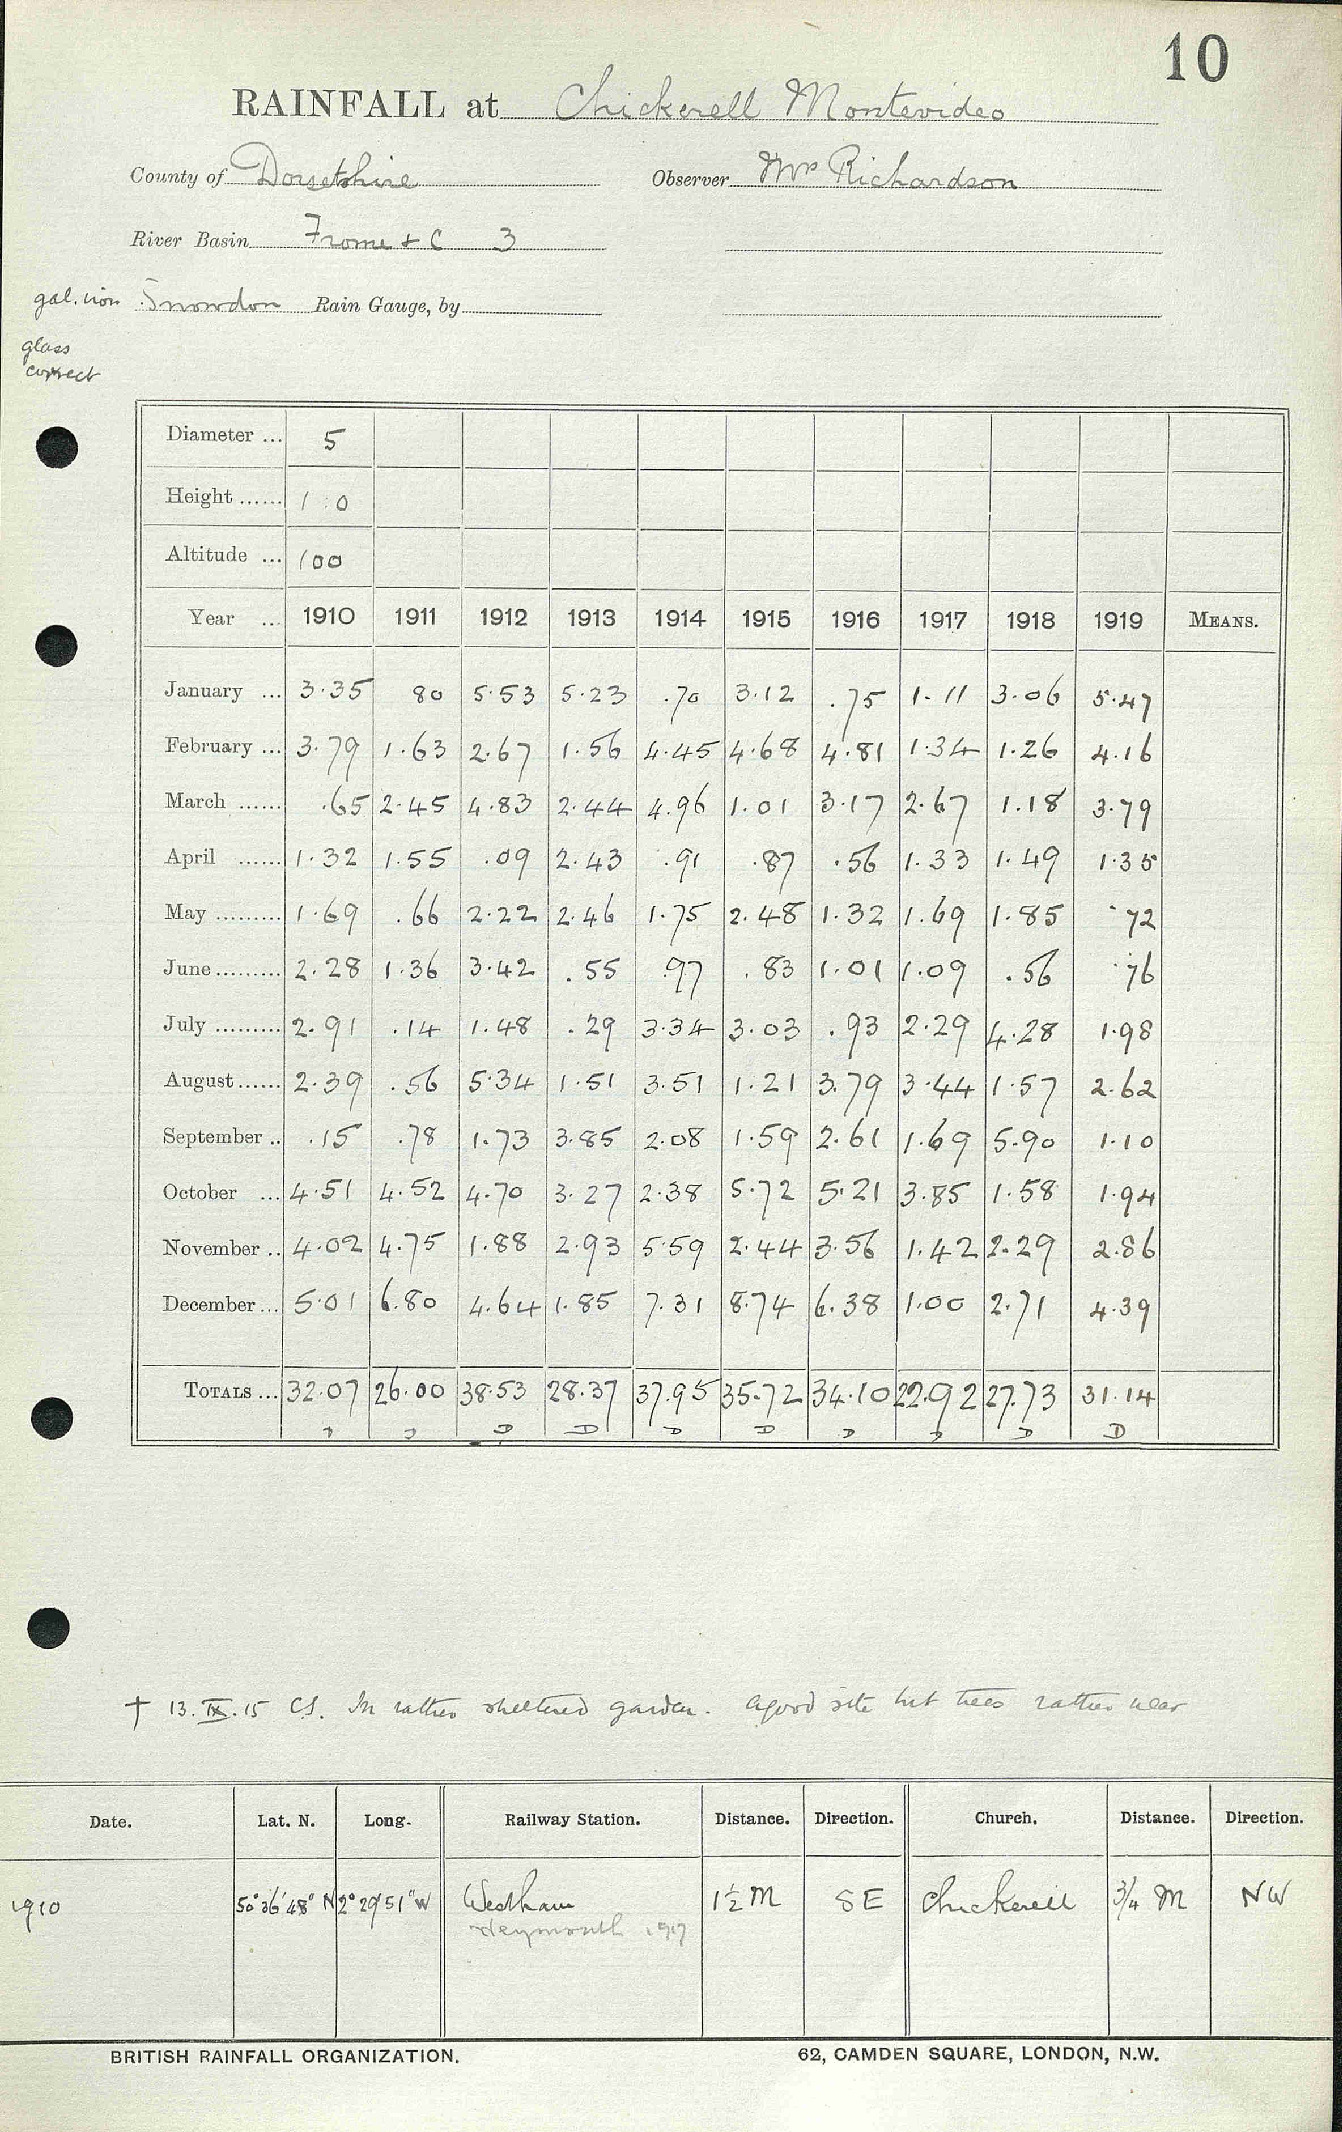 10
RAINFALL at Chickerell Montevideo
County of Dorsetshire Observer Mrs Richardson
River Basin Frome & C 3
gal. iron Snowdon Rain Gauge, by
glass
correct
Diameter ... 5
Height ...... 1 : 0
Altitude ... 100
Year ... 1910 1911 1912 1913 1914 1915 1916 1917 1918 1919 MEANS.
January ... 3.35 80 5.53 5.23 .70 3.12 .75 1.11 3.06 5.47
February ... 3.79 1.63 2.67 1.56 4.45 4.68 4.81 1.34 1.26 4.16
March ...... .65 2.45 4.83 2.44 4.96 1.01 3.17 2.67 1.18 3.79
April ...... 1.32 1.55 .09 2.43 .91 .87 .56 1.33 1.49 1.35
May ......... 1.69 .66 2.22 2.46 1.75 2.48 1.32 1.69 1.85 .72
June ......... 2.28 1.36 3.42 .55 .97 .83 1.01 1.09 .56 .76
July ......... 2.91 .14 1.48 .29 3.34 3.03 .93 2.29 4.28 1.98
August ...... 2.39 .56 5.34 1.51 3.51 1.21 3.79 3.44 1.57 2.62
September .. .15 .78 1.73 3.85 2.08 1.59 2.61 1.69 5.90 1.10
October ... 4.51 4.52 4.70 3.27 2.38 5.72 5.21 3.85 1.58 1.94
November .. 4.02 4.75 1.88 2.93 5.59 2.44 3.56 1.42 2.29 2.86
December ... 5.01 6.80 4.64 1.85 7.31 8.74 6.38 1.00 2.71 4.39
TOTALS ... 32.07 26.00 38.53 28.37 37.95 35.72 34.10 22.92 27.73 31.14
D D D D D D D D D D
† 13.IX.15 CS. In rather sheltered garden. A good site but trees rather near
Date. Lat. N. Long. Railway Station. Distance. Direction. Church. Distance. Direction.
1910 50° 36' 48" N 2° 29' 51" W Westham 1½ M SE Chickerell ¾ M NW
Weymouth 1917
BRITISH RAINFALL ORGANIZATION. 62, CAMDEN SQUARE, LONDON, N.W.